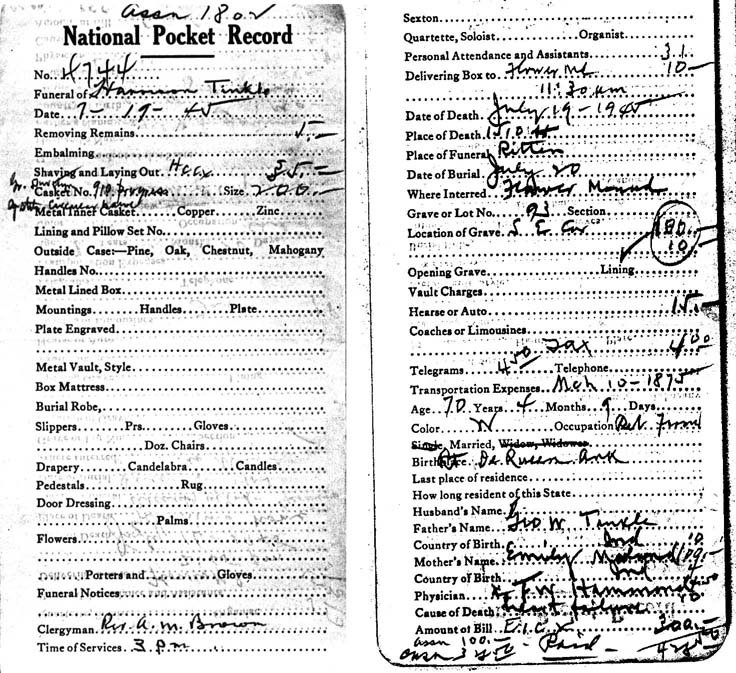 Assn 180.00
National Pocket Record
No. 4744
Funeral of Harrison Tinkle
Date 7-19-45
Removing Remains 5.-
Embalming
Shaving and Laying Out. 35.-
Casket No. 910 Progress Size 200.-
Metal Inner Casket Copper Zinc
Lining and Pillow Set No.
Outside Case:—Pine, Oak, Chestnut, Mahogany
Handles No.
Metal Lined Box
Mountings Handles Plate
Plate Engraved
Metal Vault, Style
Box Mattress
Burial Robe,
Slippers Prs. Gloves
Doz. Chairs
Drapery Candelabra Candles
Pedestals Rug
Door Dressing
Palms
Flowers
Porters and Gloves
Funeral Notices
Clergyman Rev A. M. Brown
Time of Services 3 P.M.
Sexton
Quartette, Soloist Organist
Personal Attendance and Assistants
Delivering Box to 10-
11:30 am
Date of Death July 19-1945
Place of Death
Place of Funeral Ritter
Date of Burial July 20
Where Interred Flower Mound
Grave or Lot No. 93 Section
Location of Grave S. E. Cor 180.-
10.-
Opening Grave Lining
Vault Charges
Hearse or Auto 15.-
Coaches or Limousines
Tax 4.00
Telegrams 4.50 Telephone
Transportation Expenses Mch 10-1875
Age 70 Years 4 Months 9 Days
Color W Occupation Ret Farmer
Single, Married, Widow, Widower
Birthplace De Queen Ark
Last place of residence
How long resident of this State
Husband's Name
Father's Name Geo W. Tinkle
Country of Birth Ind
Mother's Name Emily
Country of Birth Ind
Physician T. W. Hammond
Cause of Death Heart failure
Amount of Bill 300.-
Assn 100.-
Paid